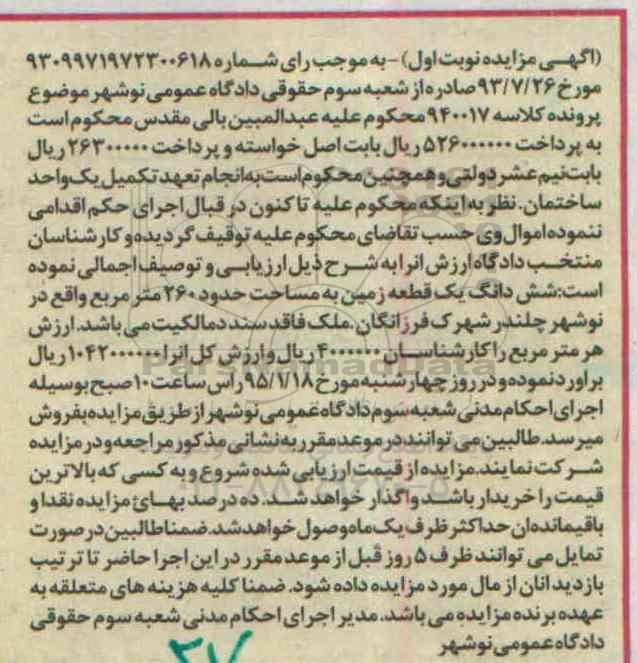 (اگهی مزایده نوبت اول) - به موجب رای شماره ۹۳۰۹۹۷۱۹۷۲۳۰۰۶۱۸
مورخ ۹۳/۷/۲۶ صادره از شعبه سوم حقوقی دادگاه عمومی نوشهر موضوع
پرونده کلاسه ۹۴۰۰۱۷ محکوم علیه عبدالمبین بالی مقدس محکوم است
به پرداخت ۵۲۶۰۰۰۰۰۰ ریال بابت اصل خواسته و پرداخت ۲۶۳۰۰۰۰۰ ریال
بابت نیم عشر دولتی و همچنین محکوم است به انجام تعهد تکمیل یک واحد
ساختمان. نظر به اینکه محکوم علیه تاکنون در قبال اجرای حکم اقدامی
ننموده اموال وی حسب تقاضای محکوم علیه توقیف گردیده و کارشناسان
منتخب دادگاه ارزش انرا به شرح ذیل ارزیابی و توصیف اجمالی نموده
است: شش دانگ یک قطعه زمین به مساحت حدود ۲۶۰ متر مربع واقع در
نوشهر چلندر شهرک فرزانگان. ملک فاقد سند د مالکیت می باشد. ارزش
هر متر مربع را کارشناسان ۴۰۰۰۰۰۰ ریال و ارزش کل انرا ۱۰۴۲۰۰۰۰۰۰ ریال
براورد نموده و در روز چهارشنبه مورخ ۹۵/۱/۱۸ راس ساعت ۱۰ صبح بوسیله
اجرای احکام مدنی شعبه سوم دادگاه عمومی نوشهر از طریق مزایده بفروش
میرسد. طالبین می توانند در موعد مقرر به نشانی مذکور مراجعه و در مزایده
شرکت نمایند. مزایده از قیمت ارزیابی شده شروع و به کسی که بالاترین
قیمت را خریدار باشد واگذار خواهد شد. ده درصد بهائ مزایده نقدا و
باقیمانده ان حداکثر ظرف یک ماه وصول خواهد شد. ضمنا طالبین در صورت
تمایل می توانند ظرف ۵ روز قبل از موعد مقرر در این اجرا حاضر تا ترتیب
بازدید انان از مال مورد مزایده داده شود. ضمنا کلیه هزینه های متعلقه به
عهده برنده مزایده می باشد. مدیر اجرای احکام مدنی شعبه سوم حقوقی
دادگاه عمومی نوشهر